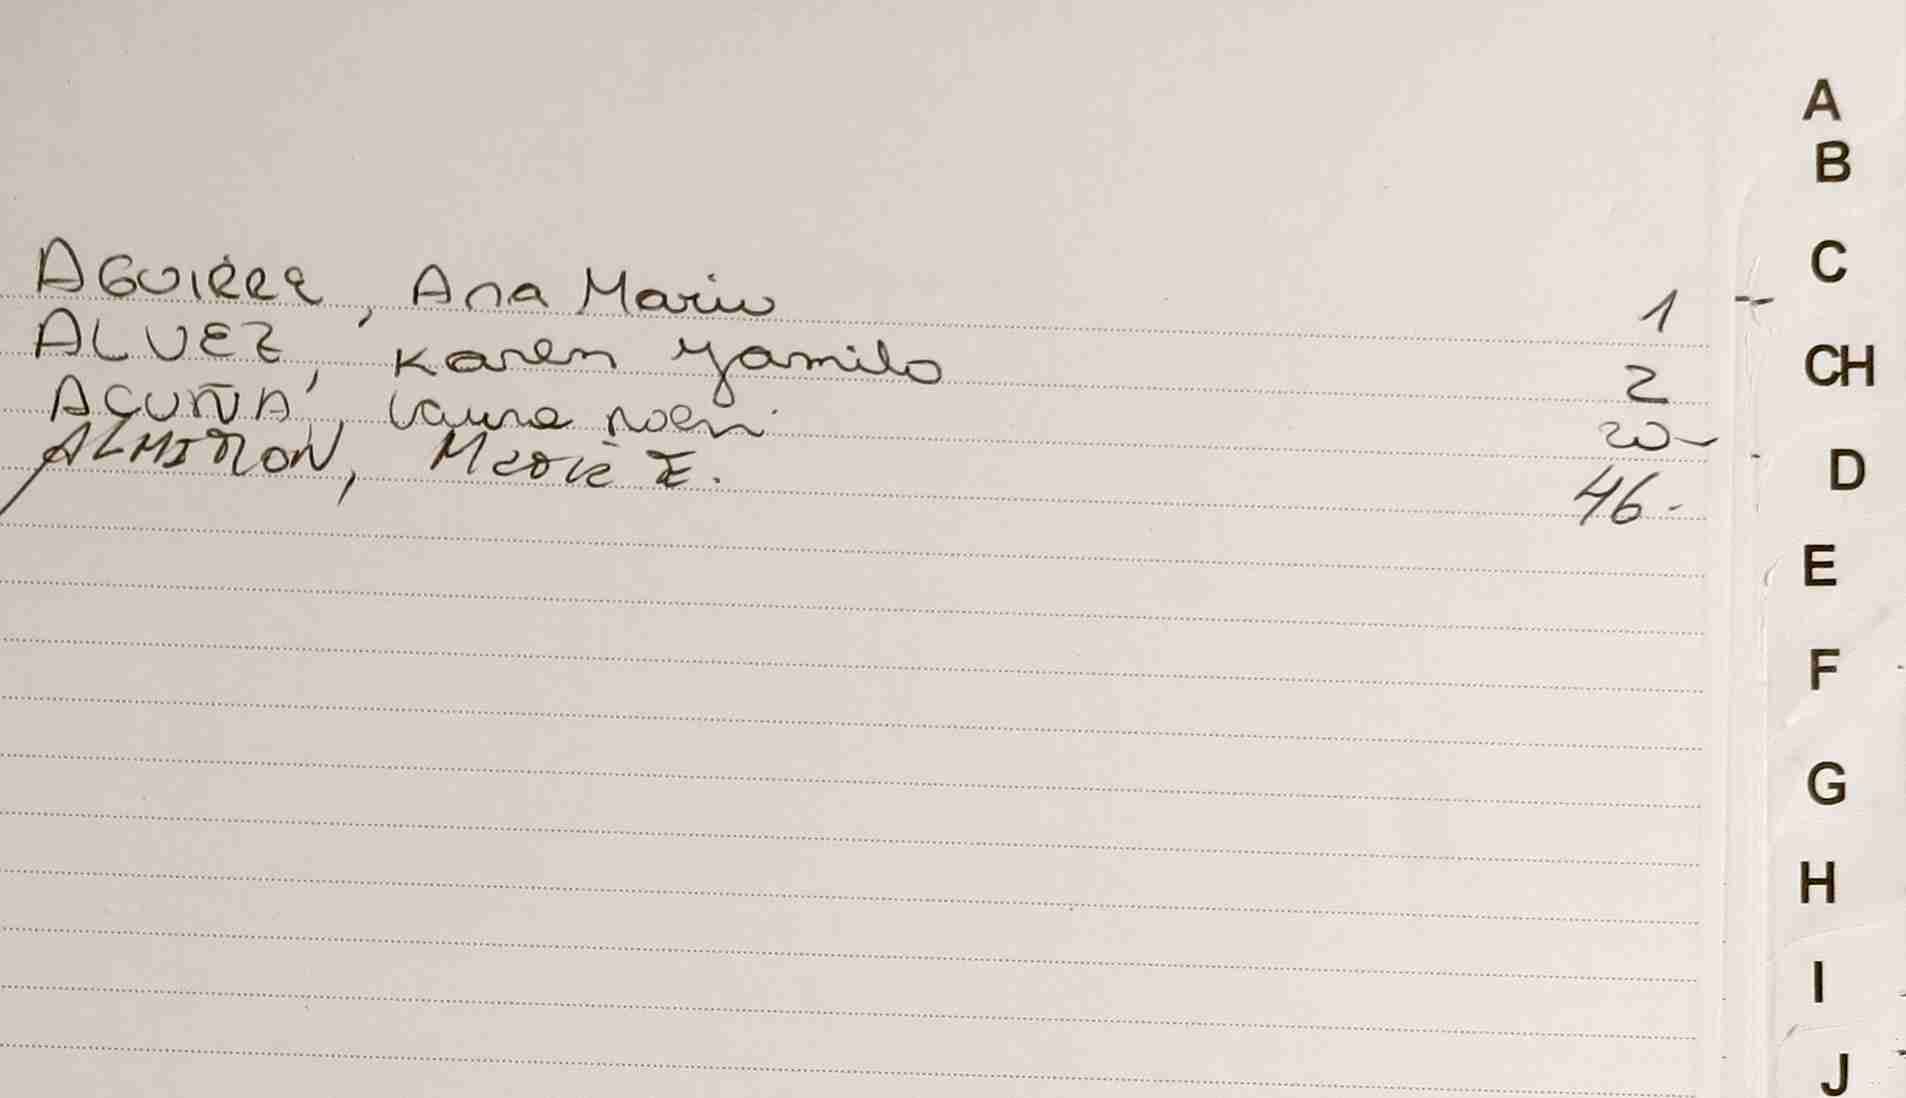 AGUIRRE, Ana Maria 1
ALVEZ, Karen Yamila 2
ACUÑA, Laura Noemi 20
ALMIRON, Maria E. 46.
A
B
C
CH
D
E
F
G
H
I
J